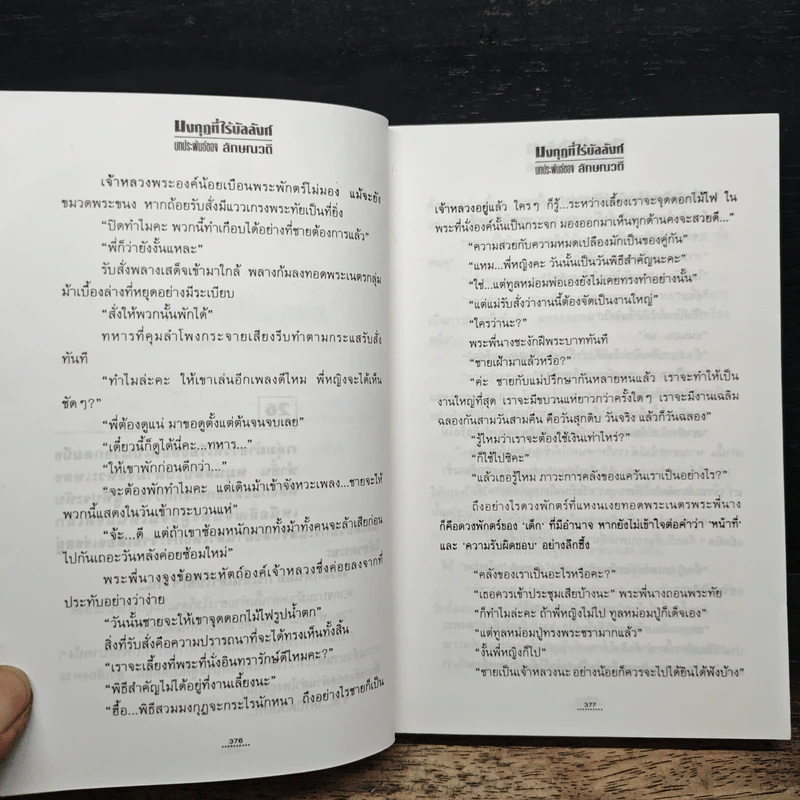 มงกุฎที่ไร้บัลลังก์
บทประพันธ์ของ ลักษณวดี
เจ้าหลวงพระองค์น้อยเบือนพระพักตร์ไม่มอง แม้จะยัง
ขมวดพระขนง หากถ้อยรับสั่งมีแววเกรงพระทัยเป็นที่ยิ่ง
“ปิดทำไมคะ พวกนี้ทำเกือบได้อย่างที่ชายต้องการแล้ว”
“พี่ก็ว่ายังงั้นแหละ”
รับสั่งพลางเสด็จเข้ามาใกล้ พลางก้มลงทอดพระเนตรกลุ่ม
ม้าเบื้องล่างที่หยุดอย่างมีระเบียบ
“สั่งให้พวกนั้นพักได้”
ทหารที่คุมลำโพงกระจายเสียงรีบทำตามกระแสรับสั่ง
ทันที
“ทำไมล่ะคะ ให้เขาเล่นอีกเพลงดีไหม พี่หญิงจะได้เห็น
ชัดๆ?”
“พี่ต้องดูแน่ มาขอดูตั้งแต่ต้นจนจบเลย”
“เดี๋ยวนี้ก็ดูได้นี่คะ...ทหาร...”
“ให้เขาพักก่อนดีกว่า...”
“จะต้องพักทำไมคะ แต่เดินม้าเข้าจังหวะเพลง...ชายจะให้
พวกนี้แสดงในวันเข้ากระบวนแห่”
“จ้ะ...ดี แต่ถ้าเขาซ้อมหนักมากทั้งม้าทั้งคนจะล้าเสียก่อน
ไปกันเถอะวันหลังค่อยซ้อมใหม่”
พระพี่นางจูงข้อพระหัตถ์องค์เจ้าหลวงซึ่งค่อยลงจากที่
ประทับอย่างว่าง่าย
“วันนั้นชายจะให้เขาจุดดอกไม้ไฟรูปน้ำตก”
สิ่งที่รับสั่งคือความปรารถนาที่จะได้ทรงเห็นทั้งสิ้น
“เราจะเลี้ยงที่พระที่นั่งอินทรารักษ์ดีไหมคะ?”
“พิธีสำคัญไม่ได้อยู่ที่งานเลี้ยงนะ”
“ฮื้อ...พิธีสวมมงกุฎจะกระไรนักหนา ถึงอย่างไรชายก็เป็น
376
มงกุฎที่ไร้บัลลังก์
บทประพันธ์ของ ลักษณวดี
เจ้าหลวงอยู่แล้ว ใครๆ ก็รู้...ระหว่างเลี้ยงเราจะจุดดอกไม้ไฟ ใน
พระที่นั่งองค์นั้นเป็นกระจก มองออกมาเห็นทุกด้านคงจะสวยดี...”
“ความสวยกับความหมดเปลืองมักเป็นของคู่กัน”
“แหม...พี่หญิงคะ วันนั้นเป็นวันพิธีสำคัญนะคะ”
“ใช่...แต่ทูลหม่อมพ่อเองยังไม่เคยทรงทำอย่างนั้น”
“แต่แม่รับสั่งว่างานนี้ต้องจัดเป็นงานใหญ่”
“ใครว่านะ?”
พระพี่นางชะงักฝีพระบาททันที
“ชายเฝ้ามาแล้วหรือ?”
“ค่ะ ชายกับแม่ปรึกษากันหลายหนแล้ว เราจะทำให้เป็น
งานใหญ่ที่สุด เราจะมีขบวนแห่ยาวกว่าครั้งใดๆ เราจะมีงานเฉลิม
ฉลองกันสามวันสามคืน คือวันสุกดิบ วันจริง แล้วก็วันฉลอง”
“รู้ไหมว่าเราจะต้องใช้เงินเท่าไหร่?”
“ก็ใช้ไปซิคะ”
“แล้วเธอรู้ไหม ภาวะการคลังของแคว้นเราเป็นอย่างไร?”
ถึงอย่างไรดวงพักตร์ที่แหงนเงยทอดพระเนตรพระพี่นาง
ก็คือดวงพักตร์ของ ‘เด็ก’ ที่มีอำนาจ หากยังไม่เข้าใจต่อคำว่า ‘หน้าที่’
และ ‘ความรับผิดชอบ’ อย่างลึกซึ้ง
“คลังของเราเป็นอะไรหรือคะ?”
“เธอควรเข้าประชุมเสียบ้างนะ” พระพี่นางถอนพระทัย
“ก็ทำไมล่ะคะ ถ้าพี่หญิงไม่ไป ทูลหม่อมปู่ก็เด็จเอง”
“แต่ทูลหม่อมปู่ทรงพระชรามากแล้ว”
“งั้นพี่หญิงก็ไป”
“ชายเป็นเจ้าหลวงนะ อย่างน้อยก็ควรจะไปได้ยินได้ฟังบ้าง”
377